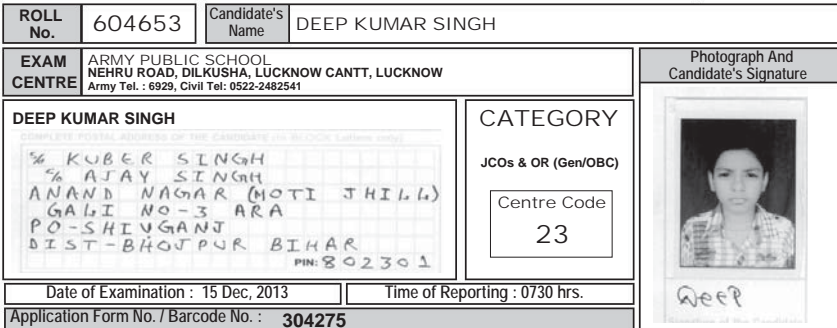 ROLL No. 604653 Candidate's Name DEEP KUMAR SINGH
EXAM CENTRE
ARMY PUBLIC SCHOOL
NEHRU ROAD, DILKUSHA, LUCKNOW CANTT, LUCKNOW
Army Tel. : 6929, Civil Tel: 0522-2482541
Photograph And
Candidate's Signature
DEEP KUMAR SINGH
COMPLETE POSTAL ADDRESS OF THE CANDIDATE (in BLOCK Letters only)
℅ KUBER SINGH
℅ AJAY SINGH
ANAND NAGAR (MOTI JHILL)
GALI NO-3 ARA
PO-SHIVGANJ
DIST-BHOJPUR BIHAR
PIN: 802301
CATEGORY
JCOs & OR (Gen/OBC)
Centre Code
23
Deep
Signature of the Candidate
Date of Examination : 15 Dec, 2013
Time of Reporting : 0730 hrs.
Application Form No. / Barcode No. : 304275